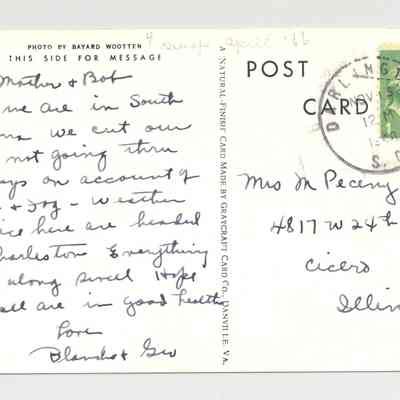 PHOTO BY BAYARD WOOTTEN
THIS SIDE FOR MESSAGE
Mother & Bob
we are in South
we cut our
not going thru
on account of
& Fog - Weather
here are headed
Charleston Everything
along swell Hope
all are in good health
Love
Blanche & Geo
A NATURAL-FINISH CARD MADE BY GRAYCRAFT CARD CO., DANVILLE, VA.
POST
CARD
DARLINGT
NOV 15
12 M
S. C
Mrs M Peceny
4817 W 24th
Cicero
Illin